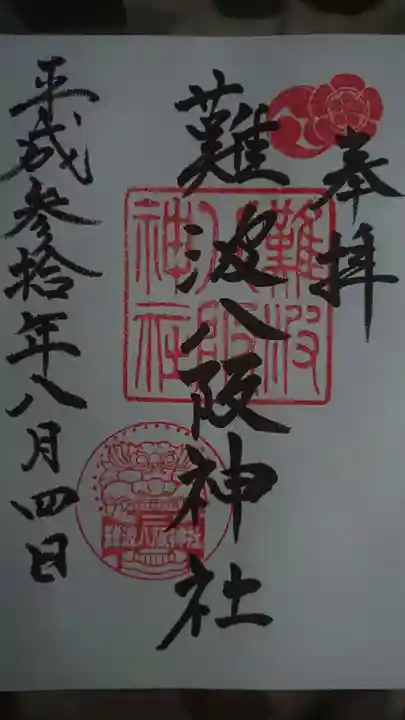 奉拝
難波八阪神社
難波八阪神社
平成参拾年八月四日
難波八阪神社